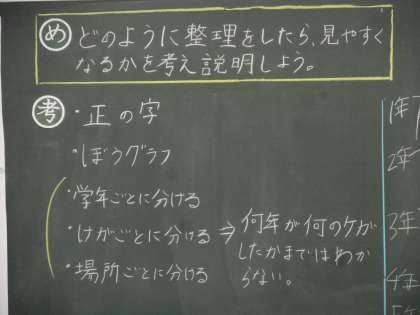 め どのように整理をしたら、見やすく
なるかを考え説明しよう。
考 ・正の字
・ぼうグラフ
・学年ごとに分ける
・けがごとに分ける ⇒ 何年が何のケガ
したかまではわか
らない。
・場所ごとに分ける
1年
2年
3年
4年
5年